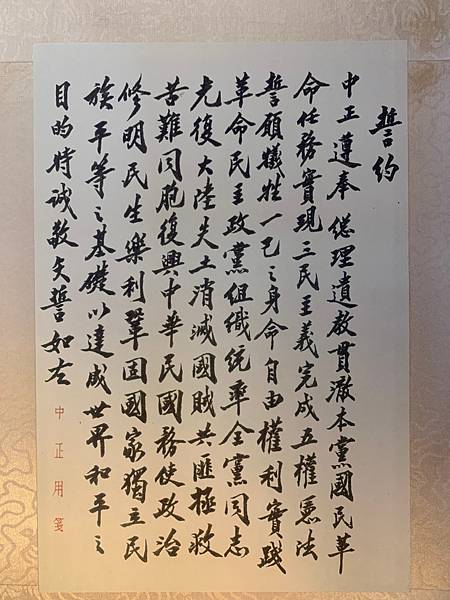 誓約
中正 遵奉 總理遺教貫澈本黨國民革
命任務實現三民主義完成五權憲法
誓願犧牲一己之身命自由權利實踐
革命民主政黨組織統率全黨同志
光復大陸失土消滅國賊共匪拯救
苦難同胞復興中華民國務使政治
修明民生樂利鞏固國家獨立民
族平等之基礎以達成世界和平之
目的特誠敬矢誓如左
中正用箋